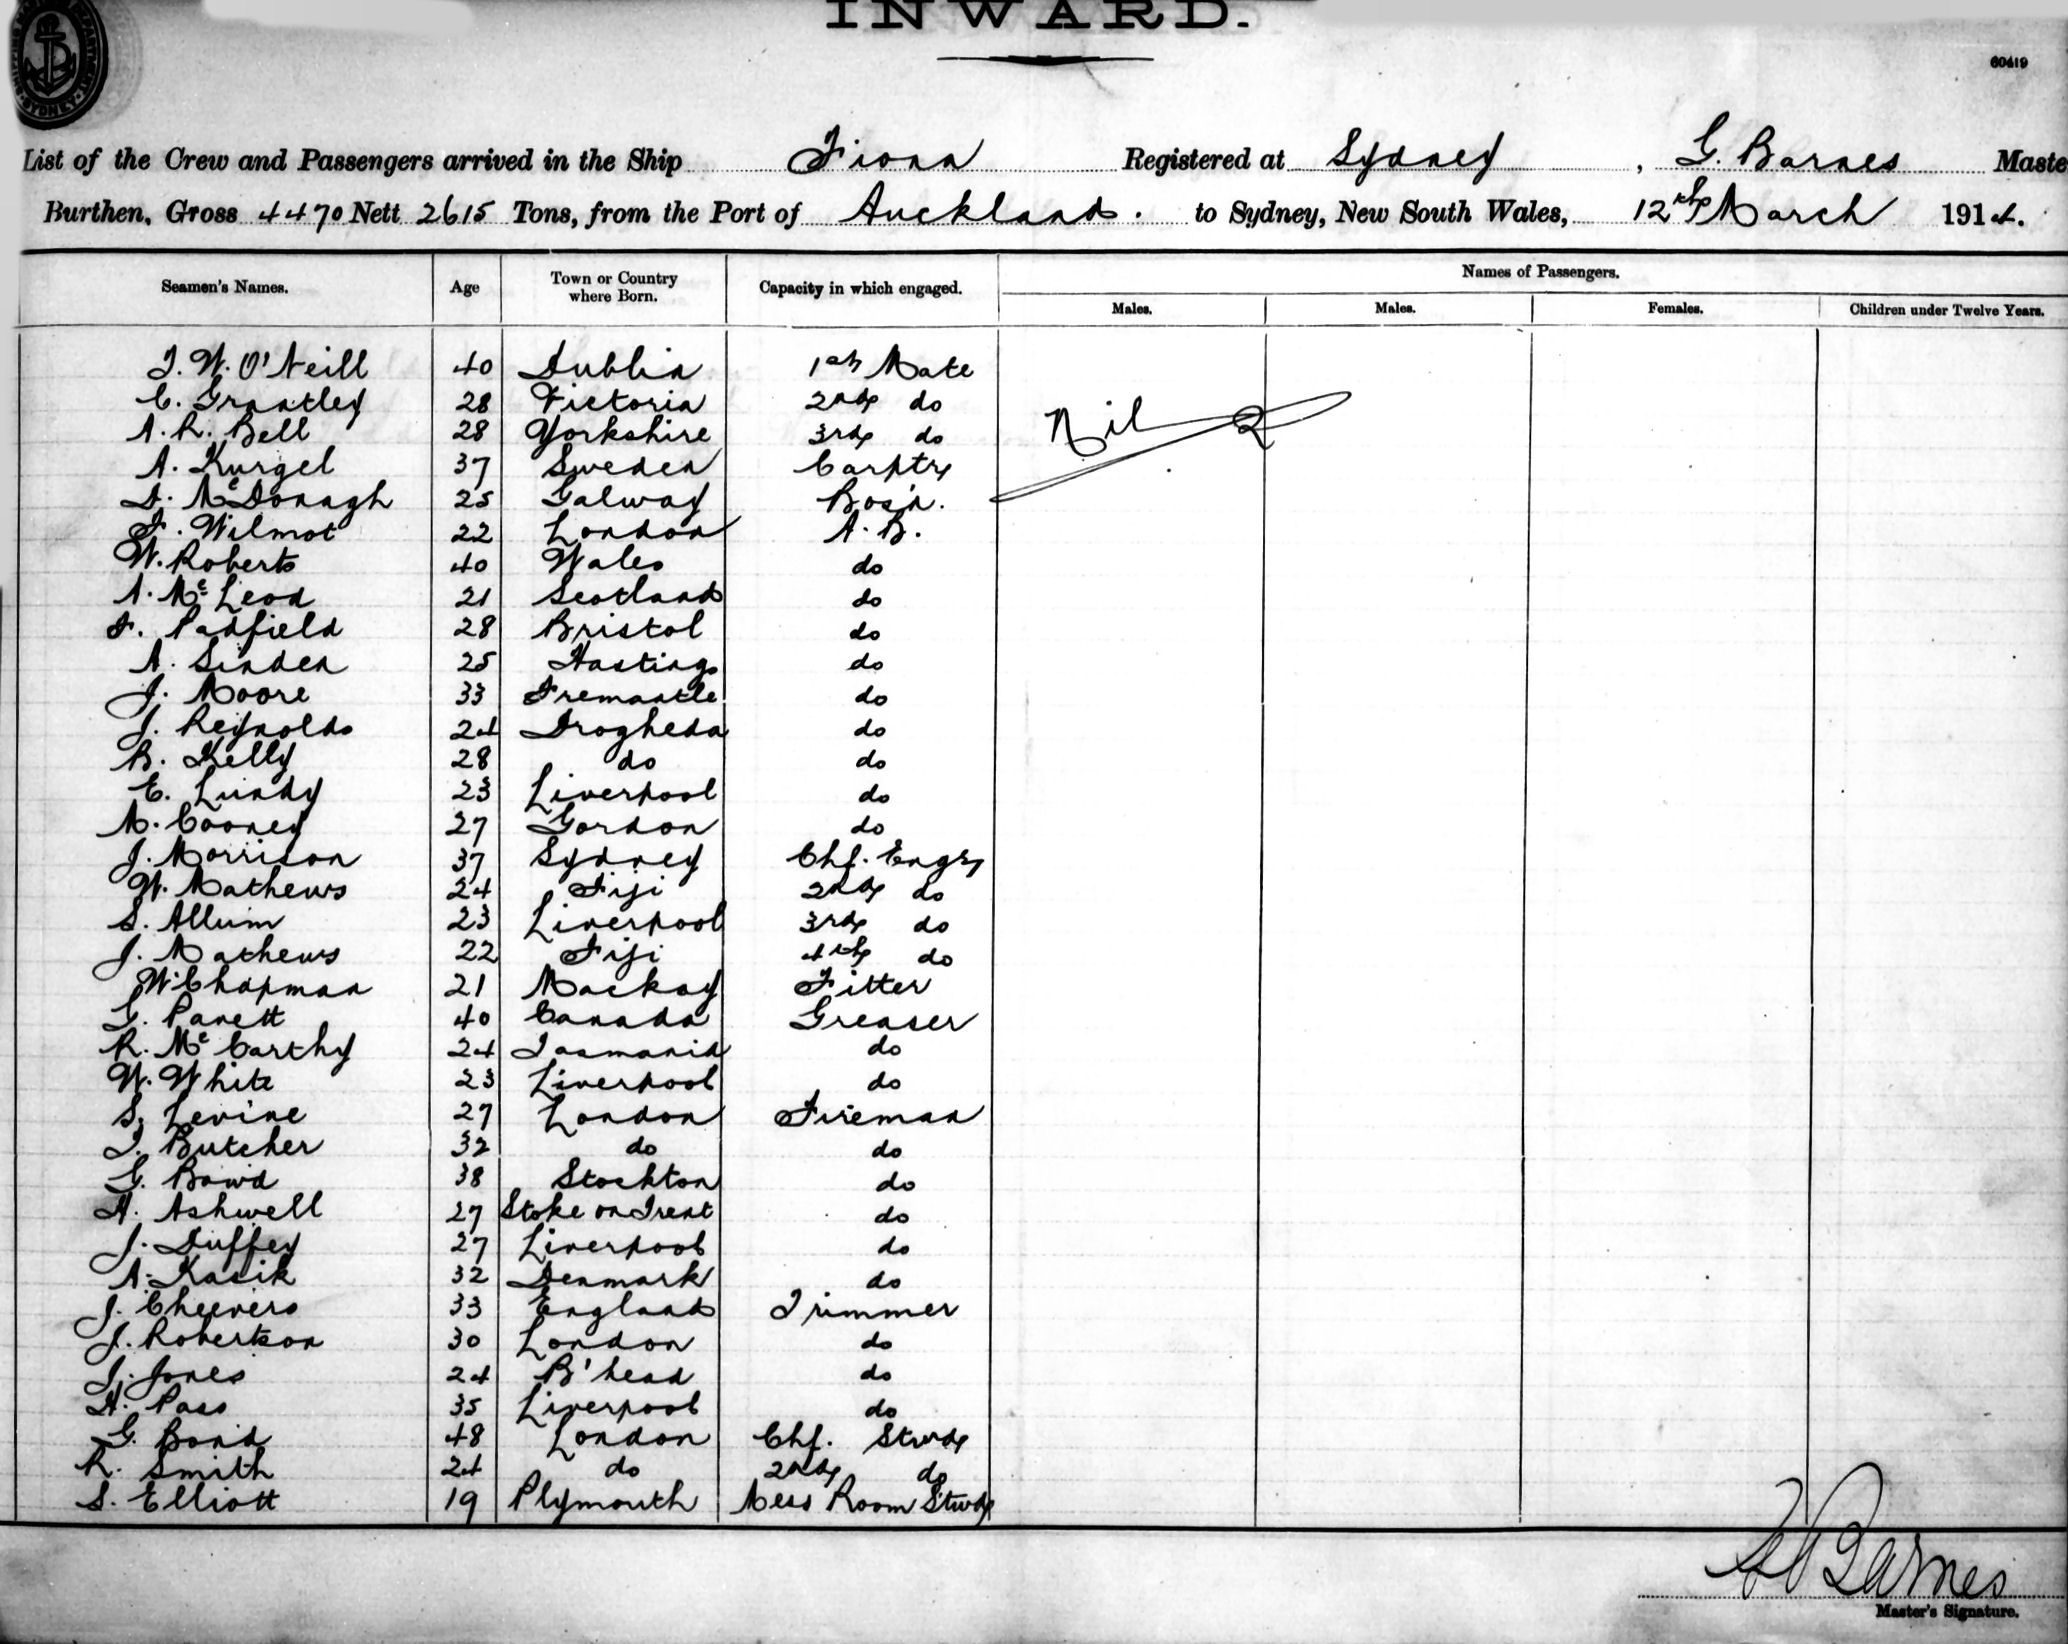 INWARD.
60419
List of the Crew and Passengers arrived in the Ship Fiona Registered at Sydney, G. Barnes Maste
Burthen, Gross 4470 Nett 2615 Tons, from the Port of Auckland. to Sydney, New South Wales, 12th March 1914.
Seamen's Names. Age Town or Country where Born. Capacity in which engaged. Names of Passengers.
Males. Males. Females. Children under Twelve Years.
T. W. O'Neill 40 Dublin 1st Mate
C. Grantley 28 Victoria 2nd do
A. R. Bell 28 Yorkshire 3rd do
Nil
A. Kurgel 37 Sweden Carptr
D. McDonagh 25 Galway Bos'n.
F. Wilmot 22 London A. B.
W. Roberts 40 Wales do
A. McLeod 21 Scotland do
F. Padfield 28 Bristol do
A. Sinden 25 Hastings do
J. Moore 33 Fremantle do
J. Reynolds 24 Drogheda do
B. Kelly 28 do do
E. Lundy 23 Liverpool do
M. Cooney 27 Gordon do
J. Morrison 37 Sydney Chf. Engr
W. Mathews 24 Fiji 2nd do
S. Allum 23 Liverpool 3rd do
J. Mathews 22 Fiji 4th do
W Chapman 21 Mackay Fitter
G. Panett 40 Canada Greaser
R. McCarthy 24 Tasmania do
W. White 23 Liverpool do
S. Levine 27 London Fireman
T. Butcher 32 do do
G. Bowd 38 Stockton do
H. Ashwell 27 Stoke on Trent do
J. Duffey 27 Liverpool do
A. Kasik 32 Denmark do
J. Cheevers 33 England Trimmer
J. Robertson 30 London do
J. Jones 24 B'head do
H. Pass 35 Liverpool do
G. Bond 48 London Chf. Stwd
R. Smith 24 do 2nd do
S. Elliott 19 Plymouth Mess Room Stwd
Barnes
Master's Signature.